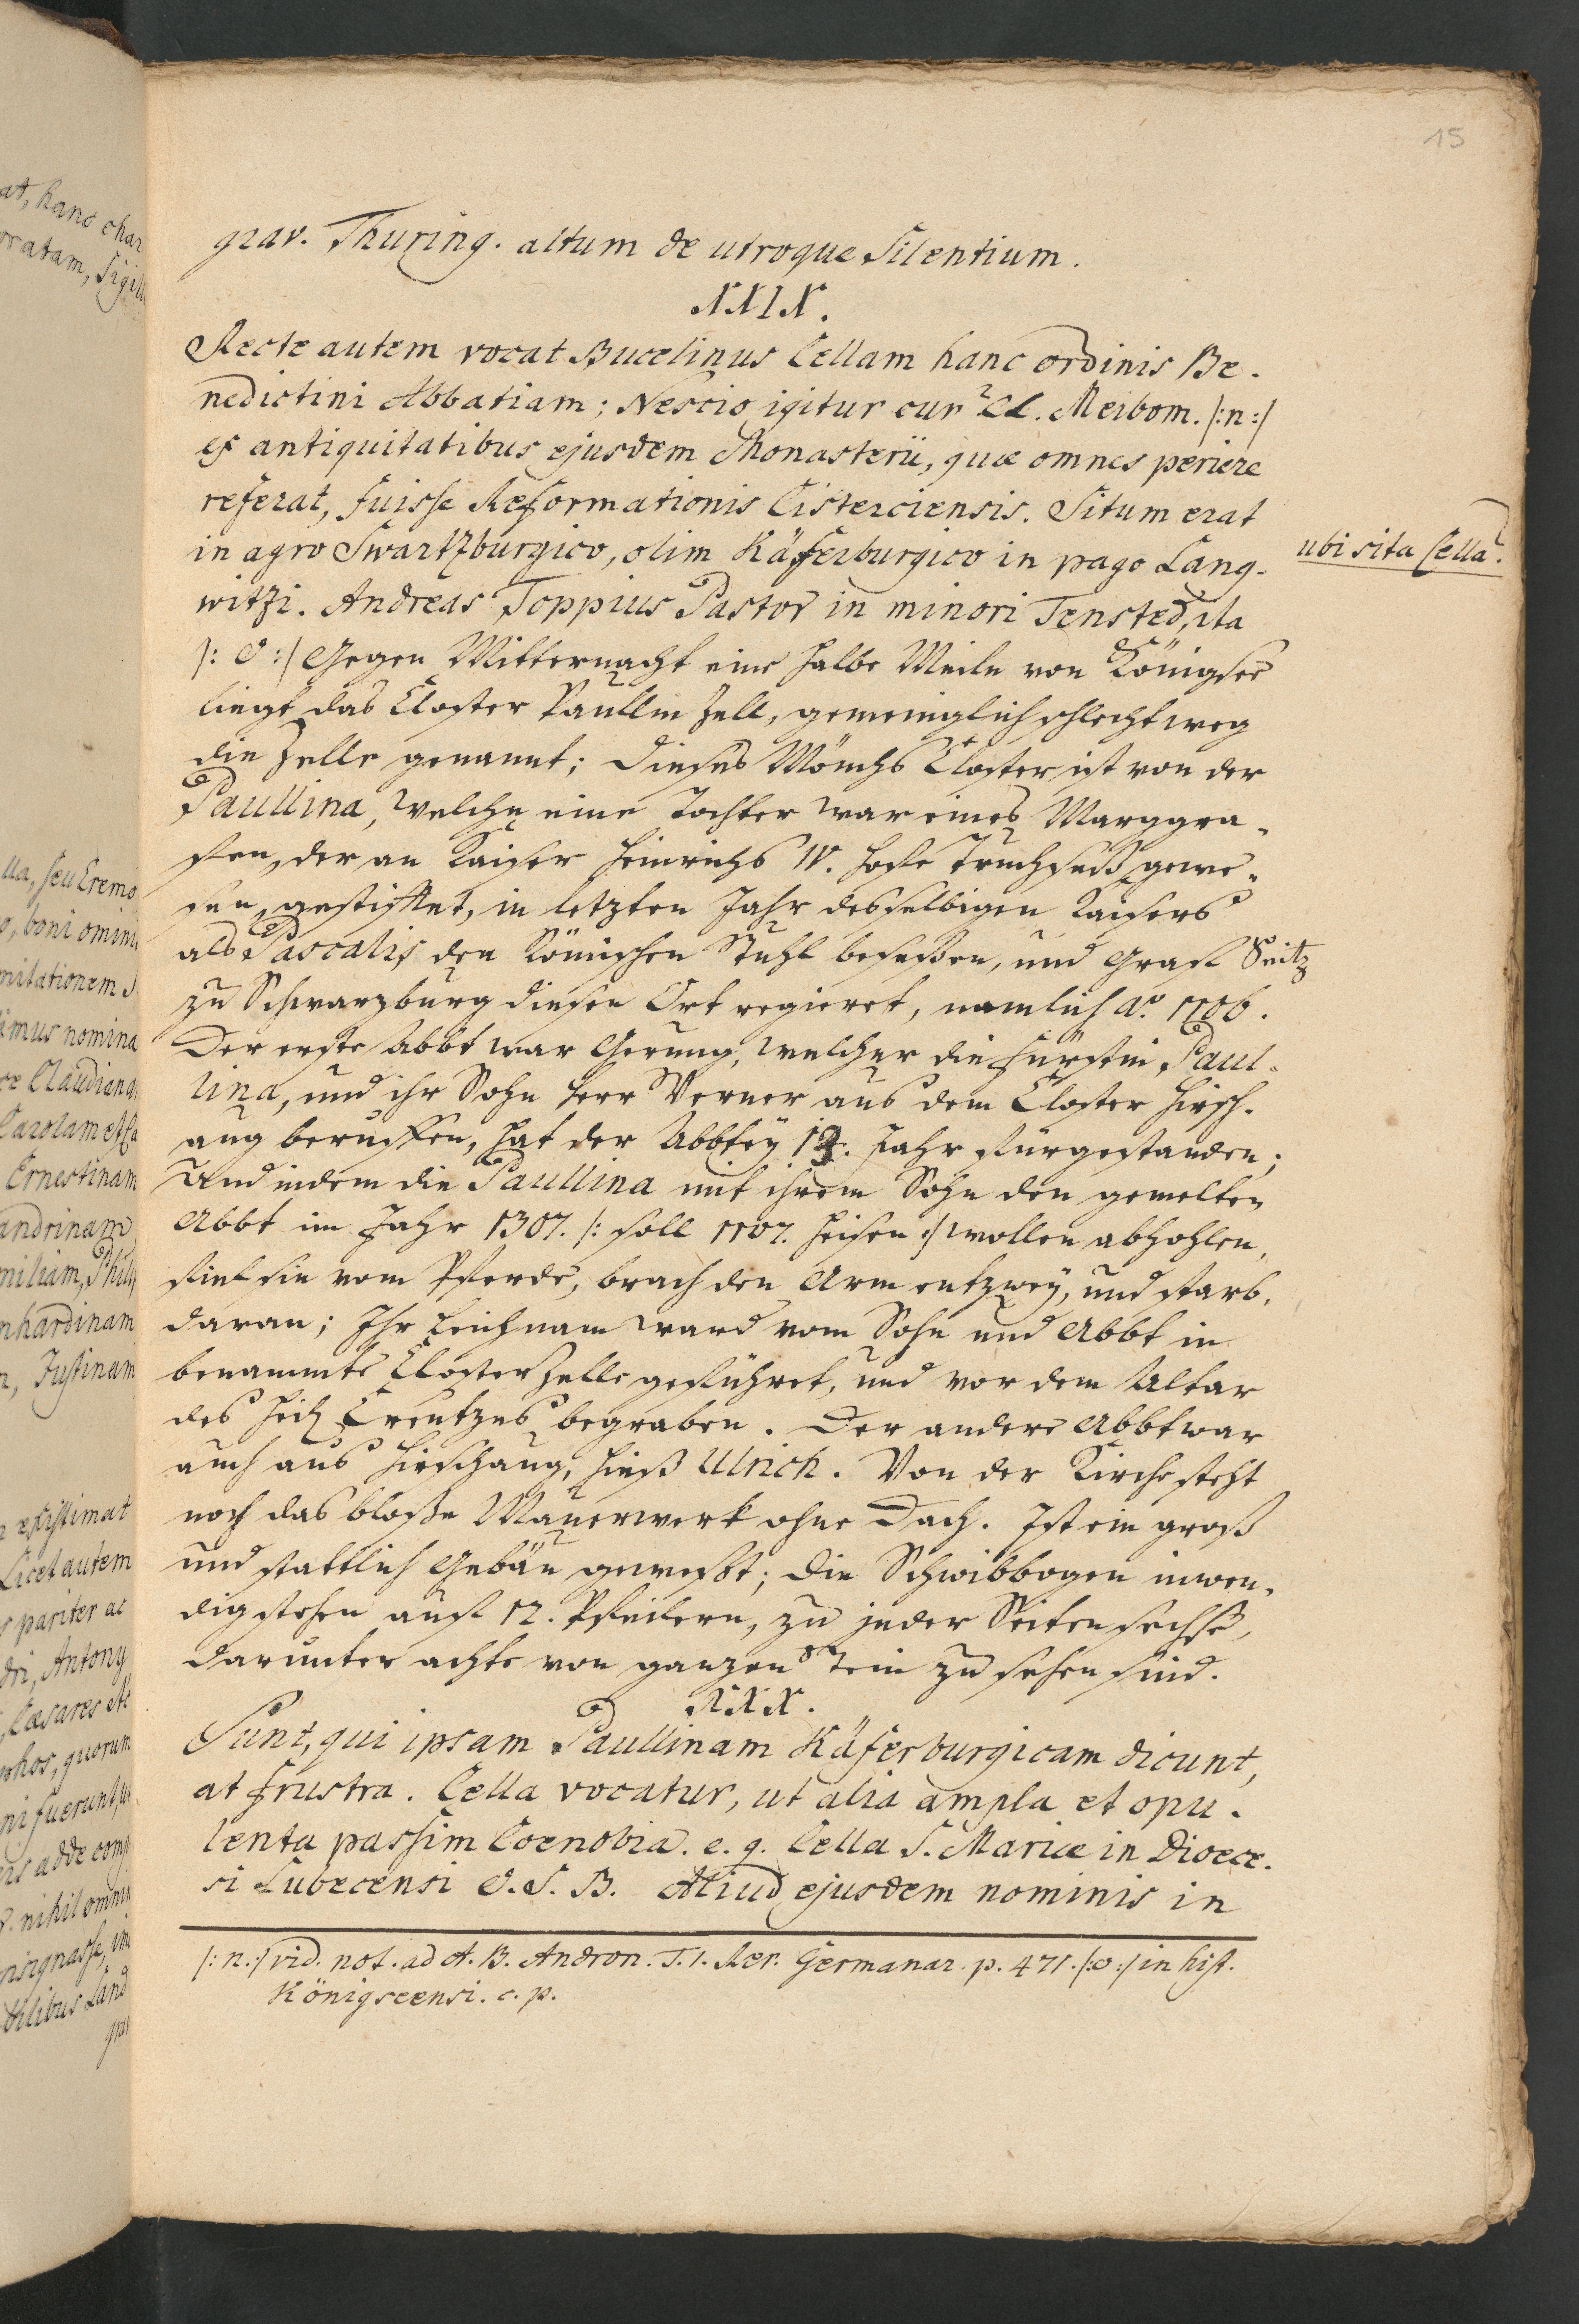 15
grav. Thuring. altum de utroque silentium.
XXIX.
Recte autem vocat Bucelinus Cellam hanc ordinis Be-
nedictini Abbatiam; Nescio igitur cur Cl. Meibom. /:n:/
ex antiquitatibus ejusdem Monasterii, quæ omnes periere
referat, fuisse Reformationis Cisterciensis. Situm erat
in agro Swartzburgico, olim Käferburgico in pago Lang-
ubi sita Cella.
witzi. Andreas Toppius Pastor in minori Tensted, ita
/: o :/ Gegen Mitternacht eine halbe Meile von Königsee
liegt das Closter Paullin Zell, gemeiniglich schlechtweg
die Zelle genannt; Dieses Mönchs Closter ist von der
Paullina, welche eine Tochter war eines Marggra-
fen, der an Kaiser Heinrichs IV. Hofe Truchseß gewe-
sen, gestifftet, in letzten Jahr desselbigen Kaisers
als Pascalis den Römischen Stuhl besessen, und Graf Seitz
zu Schwarzburg diesen Ort regieret, namlich Aº. 1106.
Der erste Abbt war Gerung, welcher die Fürstin Paul-
lina, und ihr Sohn Herr Verner aus dem Closter Hirsch-
aug beruffen, hat der Abbtey 13. Jahr fürgestanden;
Und indem die Paullina mit ihrem Sohn den gemelten
Abbt im Jahr 1307. /: soll 1107. heisen :/ wollen abhohlen,
fiel sie vom Pferde, brach den Arm entzwey, und starb
daran; Ihr Leichnam ward vom Sohn und Abbt in
benammte Closter Zelle geführet, und vor dem Altar
des Heil Creutzes begraben. Der andere Abbt war
auch aus Hirschaug, hieß Ulrich. Von der Kirche steht
noch das bloße Mauerwerk ohne Dach. Ist ein groß
und stattlich Gebäu gewesßt; Die Schwibbogen inwen-
dig stehen auf 12. Pfeilern, zu jeder Seiten sechse,
darunter achte von ganzen Stein zu sehen sind.
XXX.
Sunt, qui ipsam Paullinam Käferburgicam dicunt,
at frustra. Cella vocatur, ut alia ampla et opu-
lenta passim Coenobia. e. g. Cella S. Mariæ in Dioece-
si Lubecensi O. S. B. Aliud ejusdem nominis in
/: n.:/ vid. not. ad A. B. Andron. T. 1. Rer. Germanar. p. 471. /:o:/ in hist.
Königseensi. c. p.